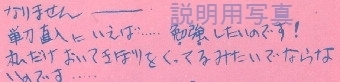 なりません――
説明用写真
単刀直入にいえば……勉強したいのです!
私だけおいてきぼりをくってるみたいでならな
いのです……